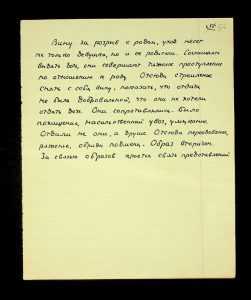 Вину за разрыв с родом, уход несет
не только девушка, но и ее родители. Соглашаясь
выдать дочь, они совершают тяжкое преступление
по отношению к роду. Отсюда стремление
снять с себя вину, показать, что отдача
не была добровольной, что они не хотели
отдать дочь. Они сопротивлялись. Было
похищение, насильственный увоз, умыкание.
Отдали не они, а другие. Отсюда переодевание,
ряженье, обряды подмены. Образ вторичен.
За связью образов кроется связь представлений